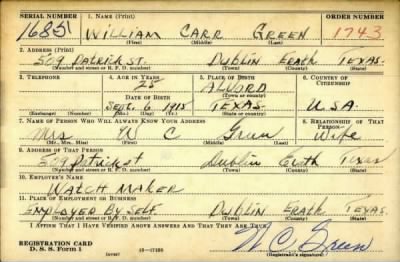 SERIAL NUMBER 1. NAME (Print) ORDER NUMBER
1685 WILLIAM CARR GREEN 1743
(First) (Middle) (Last)
2. ADDRESS (Print)
509 PATRICK ST. DUBLIN ERATH TEXAS.
(Number and street or R. F. D. number) (Town) (County) (State)
3. TELEPHONE 4. AGE IN YEARS 5. PLACE OF BIRTH 6. COUNTRY OF CITIZENSHIP
25 ALVORD
DATE OF BIRTH (Town or county)
SEPT. 6 1915 TEXAS. U.S.A.
(Exchange) (Number) (Mo.) (Day) (Yr.) (State or country)
7. NAME OF PERSON WHO WILL ALWAYS KNOW YOUR ADDRESS 8. RELATIONSHIP OF THAT PERSON
Mrs W C Green Wife
(Mr., Mrs., Miss) (First) (Middle) (Last)
9. ADDRESS OF THAT PERSON
509 Patrick st Dublin Erath Texas
(Number and street or R. F. D. number) (Town) (County) (State)
10. EMPLOYER'S NAME
WATCH MAKER
11. PLACE OF EMPLOYMENT OR BUSINESS
EMPLOYED BY SELF DUBLIN ERATH TEXAS.
(Number and street or R. F. D. number) (Town) (County) (State)
I AFFIRM THAT I HAVE VERIFIED ABOVE ANSWERS AND THAT THEY ARE TRUE.
REGISTRATION CARD W C Green
D. S. S. Form 1 (over) (Registrant's signature)